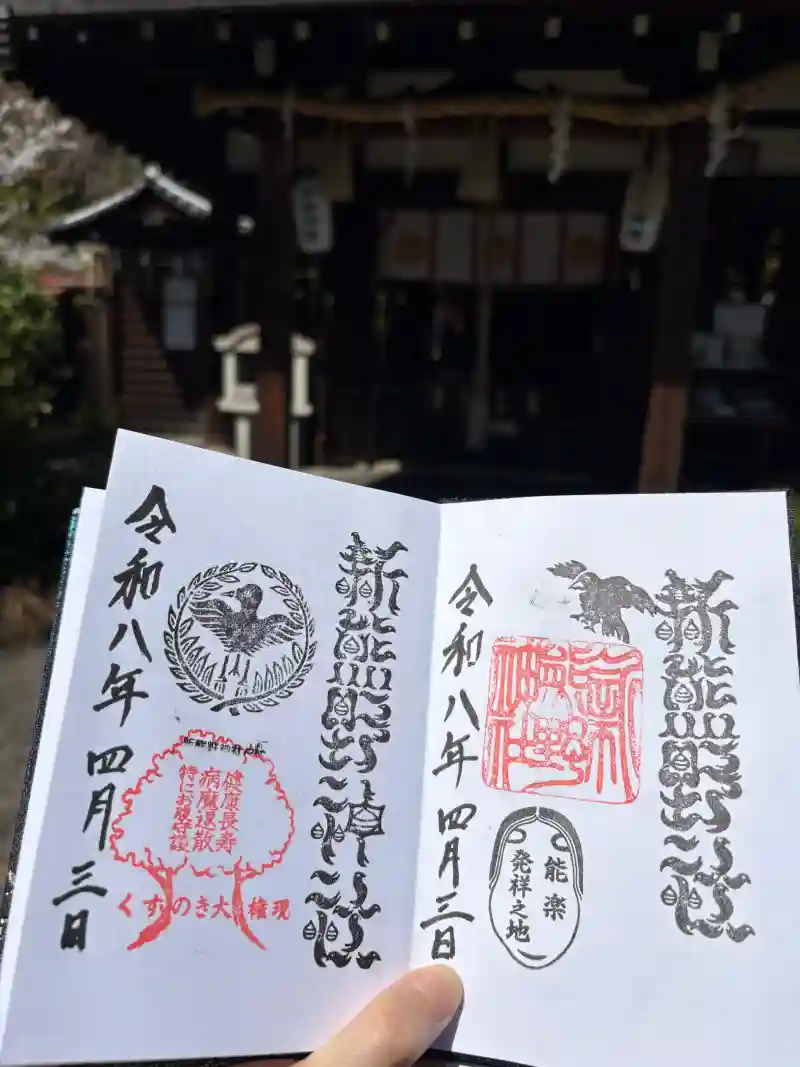 新熊野神社
能楽
発祥之地
令和八年四月三日
新熊野神社
新熊野神社
健康長寿
病魔退散
特にお腹守護
くすのき大権現
令和八年四月三日